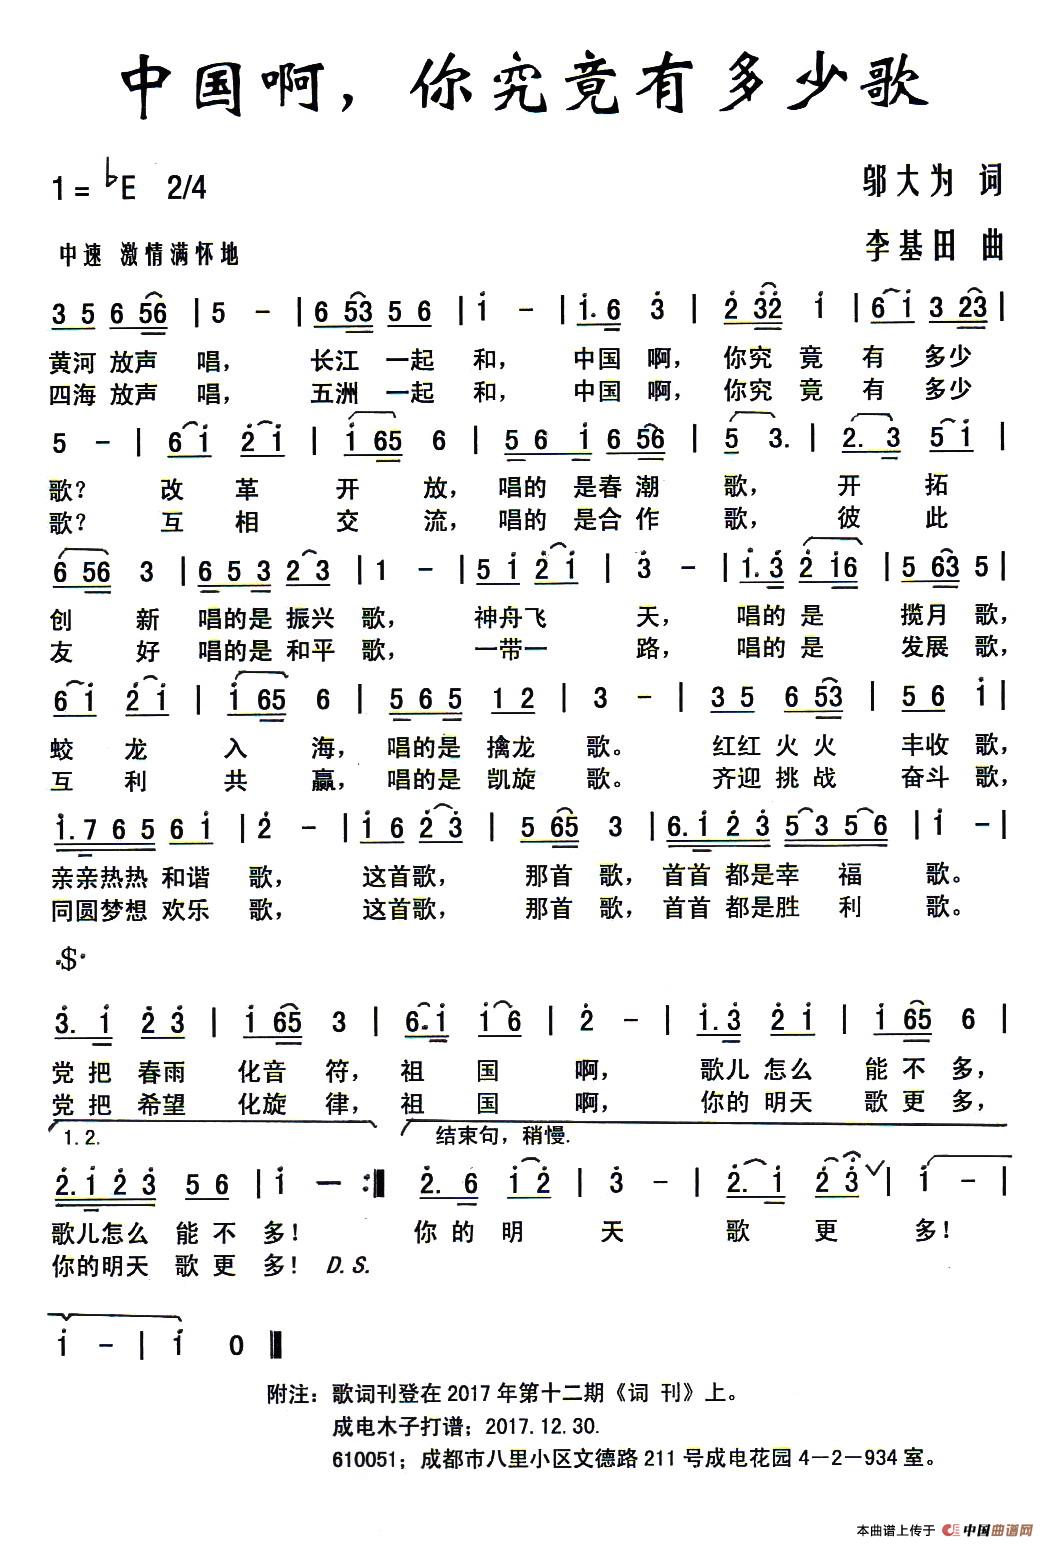 中国啊，你究竟有多少歌
1=♭E 2/4
邬大为 词
中速 激情满怀地
李基田 曲
3 5 6 56 | 5 - | 6 53 5 6 | i - | i. 6 3 | 2 32 i | 6 i 3 23 |
黄河 放声 唱， 长江 一起 和， 中国 啊， 你究 竟 有 多少
四海 放声 唱， 五洲 一起 和， 中国 啊， 你究 竟 有 多少
5 - | 6 i 2 i | i 65 6 | 5 6 i 6 56 | 5 3. | 2. 3 5 i |
歌？ 改 革 开 放， 唱的 是春 潮 歌， 开 拓
歌？ 互 相 交 流， 唱的 是合 作 歌， 彼 此
6 56 3 | 6 5 3 2 3 | 1 - | 5 i 2 i | 3 - | i. 3 2 i6 | 5 63 5 |
创 新 唱的是 振兴 歌， 神舟飞 天， 唱的 是 揽月 歌，
友 好 唱的是 和平 歌， 一带一 路， 唱的 是 发展 歌，
6 i 2 i | i 65 6 | 5 6 5 1 2 | 3 - | 3 5 6 53 | 5 6 i |
蛟 龙 入 海， 唱的是 擒龙 歌。 红红 火 火 丰收 歌，
互 利 共 赢， 唱的是 凯旋 歌。 齐迎 挑 战 奋斗 歌，
i. 7 6 5 6 i | 2 - | i 6 2 3 | 5 65 3 | 6. i 2 3 5 3 5 6 | i - |
亲亲热热 和谐 歌， 这首歌， 那首 歌， 首首 都是幸 福 歌。
同圆梦想 欢乐 歌， 这首歌， 那首 歌， 首首 都是胜 利 歌。
·$·
3. i 2 3 | i 65 3 | 6. i i 6 | 2 - | i. 3 2 i | i 65 6 |
党 把 春雨 化音 符， 祖 国 啊， 歌儿 怎么 能 不 多，
党 把 希望 化旋 律， 祖 国 啊， 你的 明天 歌 更 多，
1. 2. 结束句，稍慢.
2. i 2 3 5 6 | i - :‖ 2. 6 i 2 | 3 - | 2. i 2 3 ∨ | i - |
歌儿怎么 能 不 多！ 你 的 明 天 歌 更 多！
你的明天 歌 更 多！ D.S.
i - | i 0 ‖
附注：歌词刊登在2017年第十二期《词 刊》上。
成电木子打谱；2017.12.30.
610051；成都市八里小区文德路211号成电花园4－2－934室。
本曲谱上传于 中国曲谱网